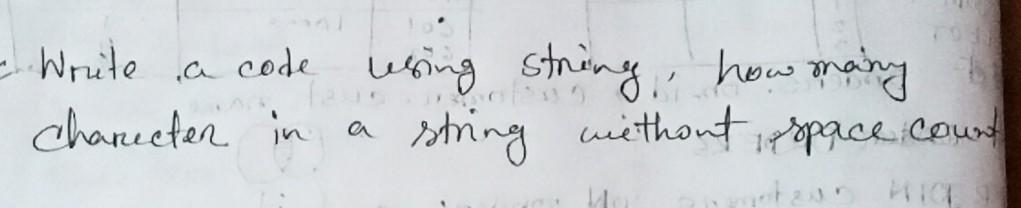 Write a code using string, how many
charecter in a string without space count